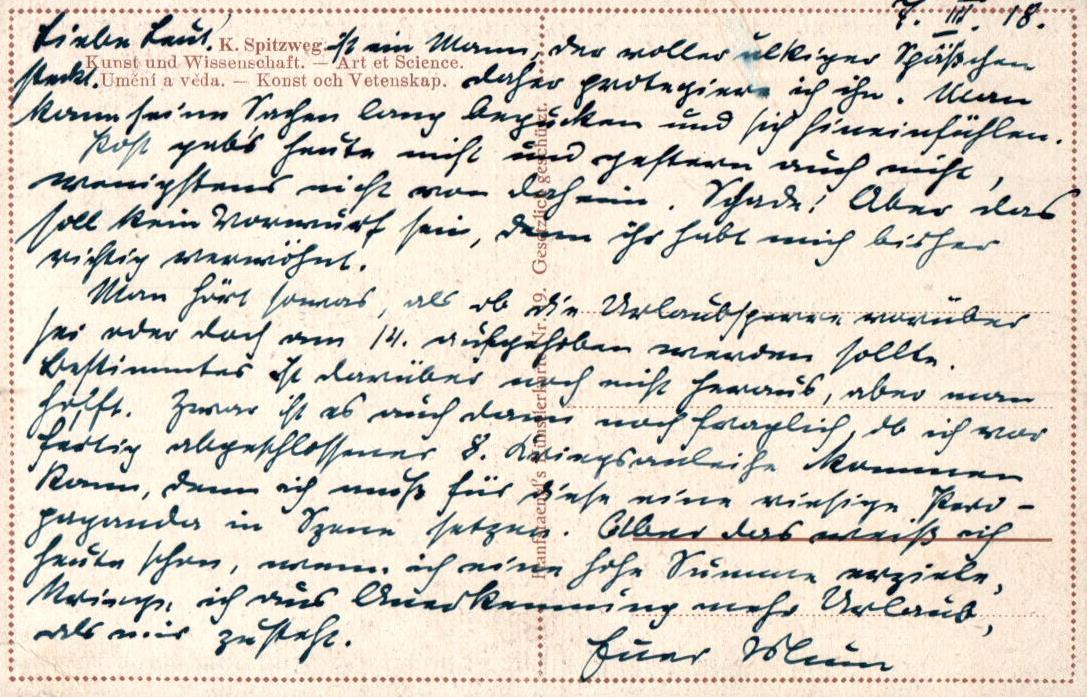 7. III. 18.
Liebe Leut. K. Spitzweg ist ein Mann, der voller ulkiger Späßchen
Kunst und Wissenschaft. — Art et Science.
steckt. Umění a věda. — Konst och Vetenskap. daher protegiere ich ihn. Man
kann seine Sachen lang begucken und sich hineinfühlen.
Post gab's heute nicht und gestern auch nicht,
wenigstens nicht von daheim. Schade! Aber das
soll kein Vorwurf sein, denn ihr habt mich bisher
richtig verwöhnt.
Man hört sowas, als ob die Urlaubsperre vorüber
sei oder doch am 14. aufgehoben werden sollte.
Bestimmtes ist darüber noch nicht heraus, aber man
hofft. Zwar ist es auch dann noch fraglich, ob ich vor
fertig abgeschlossener 8. Kriegsanleihe kommen
kann, denn ich muß für diese eine riesige Pro-
paganda in Szene setzen. Aber das weiß ich
heute schon, wenn ich eine hohe Summe erziele,
kriege ich aus Anerkennung mehr Urlaub,
als mir zusteht.
Euer
Hanfstaengl's Künstlerkarte Nr. 19. Gesetzlich geschützt.